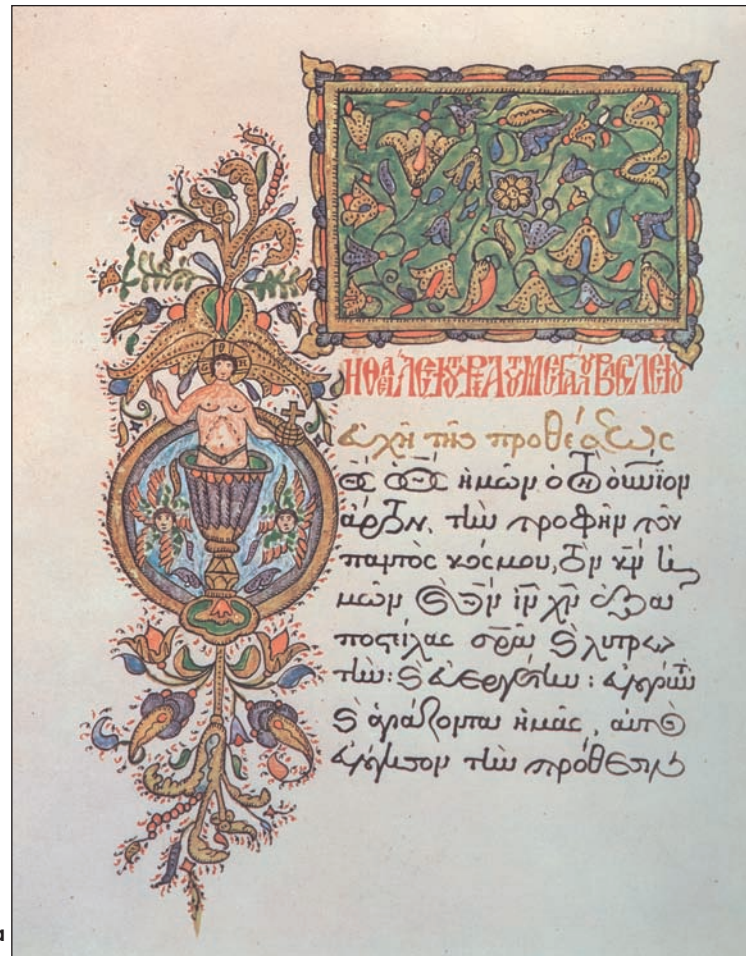 Η ΘΕΙΑ ΛΕΙΤΟΥΡΓΙΑ ΤΟΥ ΜΕΓΑΛΟΥ ΒΑΣΙΛΕΙΟΥ
εὐχὴ τῆς προθέσεως
ὁ θς ὁ θς ἡμῶν ὁ τὸν οὐνιον
ἄρτον, τὴν τροφὴν τοῦ
παντὸς κόσμου, τὸν κν ἡ
μῶν καὶ θν ιν χν ἐξα
ποστείλας σρα καὶ λυτρω
τὴν: καὶ εὐεργέτην: εὐλογοῦντα
καὶ ἁγιάζοντα ἡμᾶς, αὐτὸς
εὐλόγησον τὴν πρόθεσιν
a